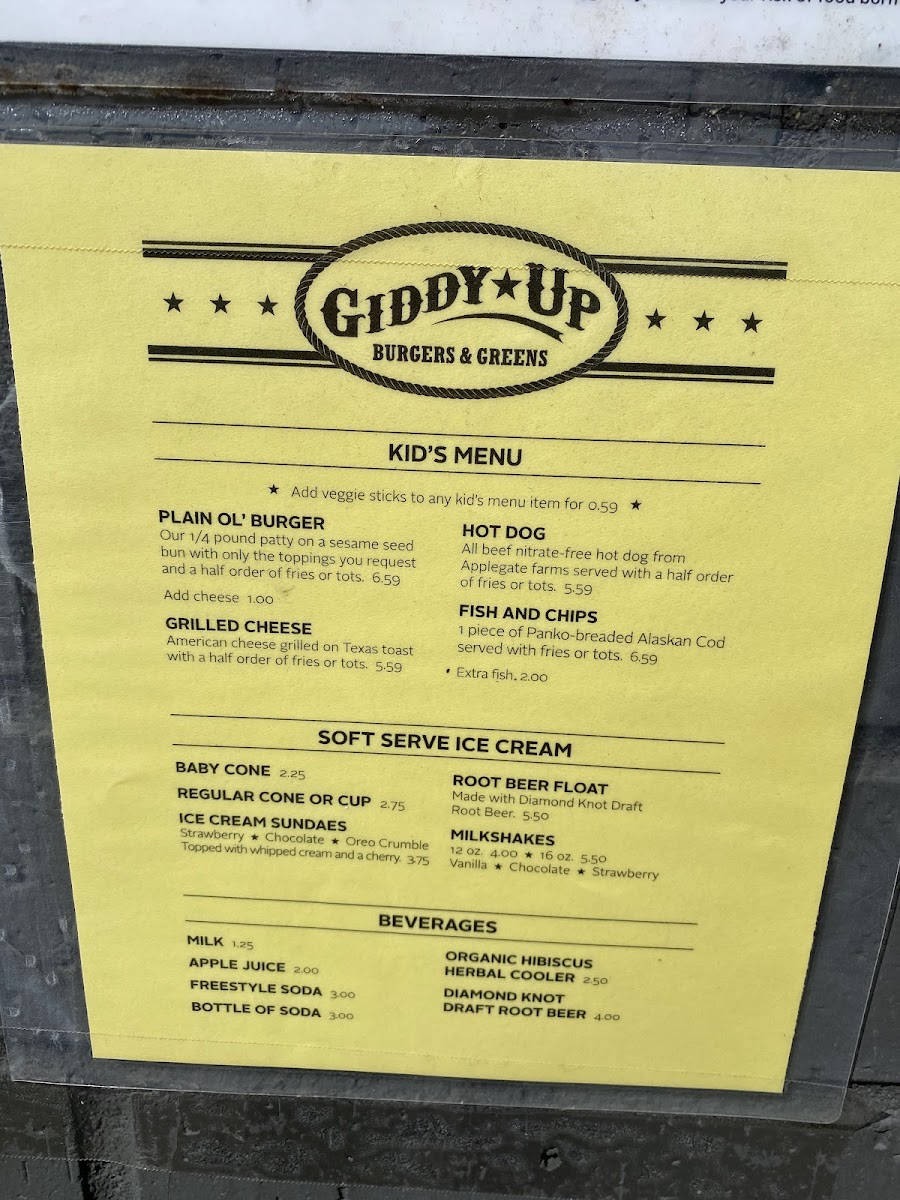 your risk of food born
GIDDY★UP
BURGERS & GREENS
KID'S MENU
★ Add veggie sticks to any kid's menu item for 0.59 ★
PLAIN OL' BURGER
Our 1/4 pound patty on a sesame seed
bun with only the toppings you request
and a half order of fries or tots. 6.59
Add cheese 1.00
GRILLED CHEESE
American cheese grilled on Texas toast
with a half order of fries or tots. 5.59
HOT DOG
All beef nitrate-free hot dog from
Applegate farms served with a half order
of fries or tots. 5.59
FISH AND CHIPS
1 piece of Panko-breaded Alaskan Cod
served with fries or tots. 6.59
Extra fish. 2.00
SOFT SERVE ICE CREAM
BABY CONE 2.25
REGULAR CONE OR CUP 2.75
ICE CREAM SUNDAES
Strawberry ★ Chocolate ★ Oreo Crumble
Topped with whipped cream and a cherry. 3.75
ROOT BEER FLOAT
Made with Diamond Knot Draft
Root Beer. 5.50
MILKSHAKES
12 oz. 4.00 ★ 16 oz. 5.50
Vanilla ★ Chocolate ★ Strawberry
BEVERAGES
MILK 1.25
APPLE JUICE 2.00
FREESTYLE SODA 3.00
BOTTLE OF SODA 3.00
ORGANIC HIBISCUS
HERBAL COOLER 2.50
DIAMOND KNOT
DRAFT ROOT BEER 4.00